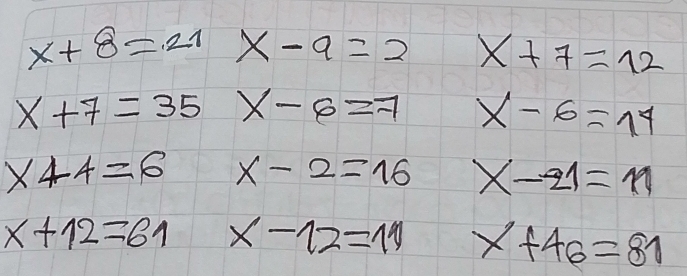 x + 8 = 21 x - 9 = 2 x + 7 = 12
x + 7 = 35 x - 6 = 7 x - 6 = 14
x + 4 = 6 x - 2 = 16 x - 21 = 11
x + 12 = 61 x - 12 = 11 x + 46 = 81